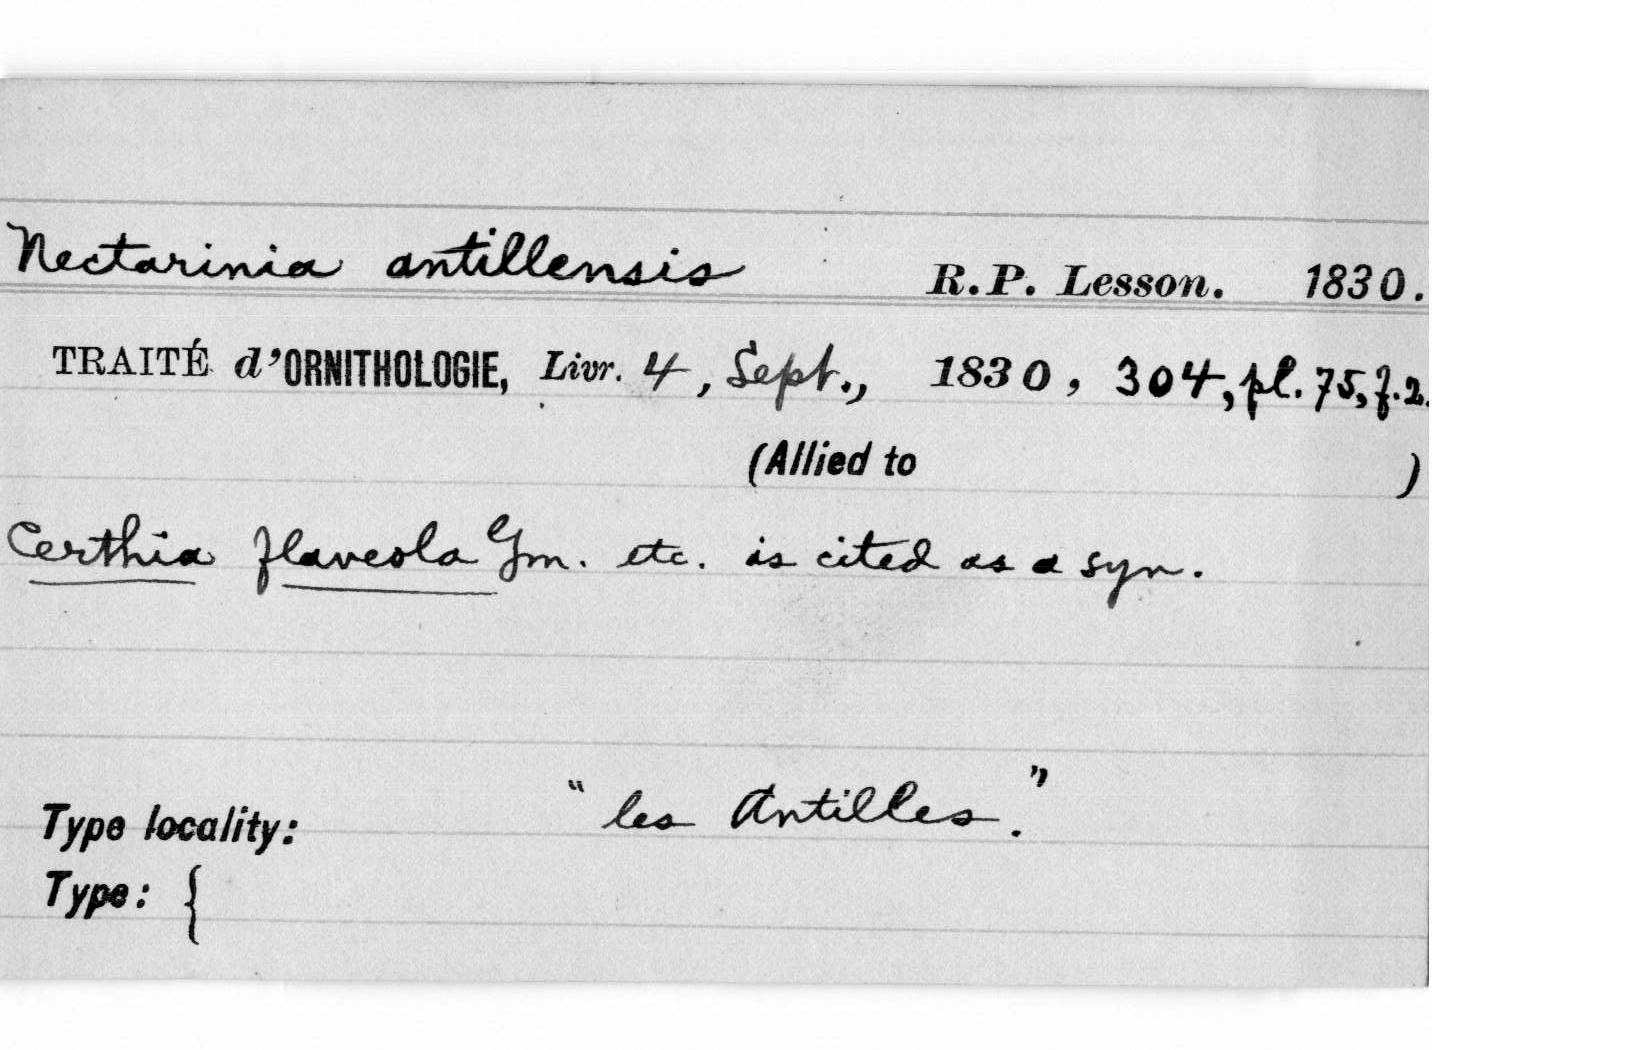 Nectarinia antillensis R.P. Lesson. 1830.
TRAITÉ d'ORNITHOLOGIE, Livr. 4, Sept., 1830, 304, pl. 75, f. 2.
(Allied to )
Certhia flaveola Gm. etc. is cited as a syn.
Type locality: "les Antilles."
Type: {